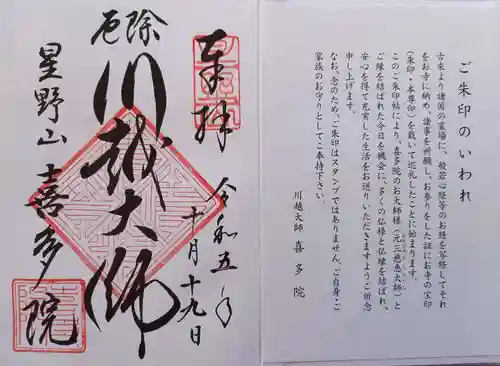 奉拝
令和五年
十月十九日
厄除
川越大師
星野山
喜多院
ご朱印のいわれ
古来より諸国の霊場に、般若心経等のお経を写経してそれ
をお寺に納め、諸事を祈願し、お参りをした証にお寺の宝印
(朱印・本尊印)を戴いて巡礼したことに始まります。
このご朱印帖により、喜多院のお大師様(元三慈恵大師)と
ご縁を結ばれた今日を機会に、多くの仏様と仏縁を結ばれ、
安心を得て充実した生活をお送りいただきますようご祈念
申し上げます。
なお、念のため、ご朱印はスタンプではありません。ご自身・ご
家族のお守りとしてご奉持下さい。
川越大師 喜多院